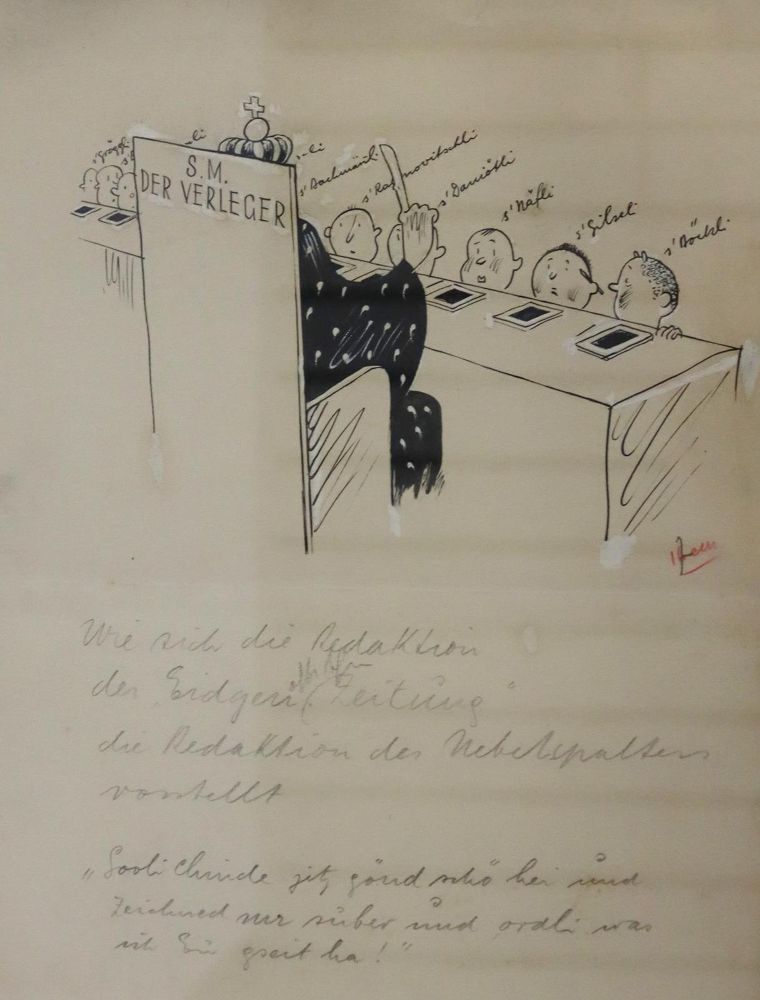 s'Gröggli
li
s'
li
s'Bachmänli
s'Rabinovitschli
s'Daniöthli
s'Näfli
s'Gilsli
s'Böckli
S.M.
DER VERLEGER
Wie sich die Redaktion
der "Eidgenöss. Zeitung"
die Redaktion des Nebelspalters
vorstellt
"Sooli Chinde jitz gönd schö hei und
Zeichned mr süber und ordli was
ich Eü gseit ha!"